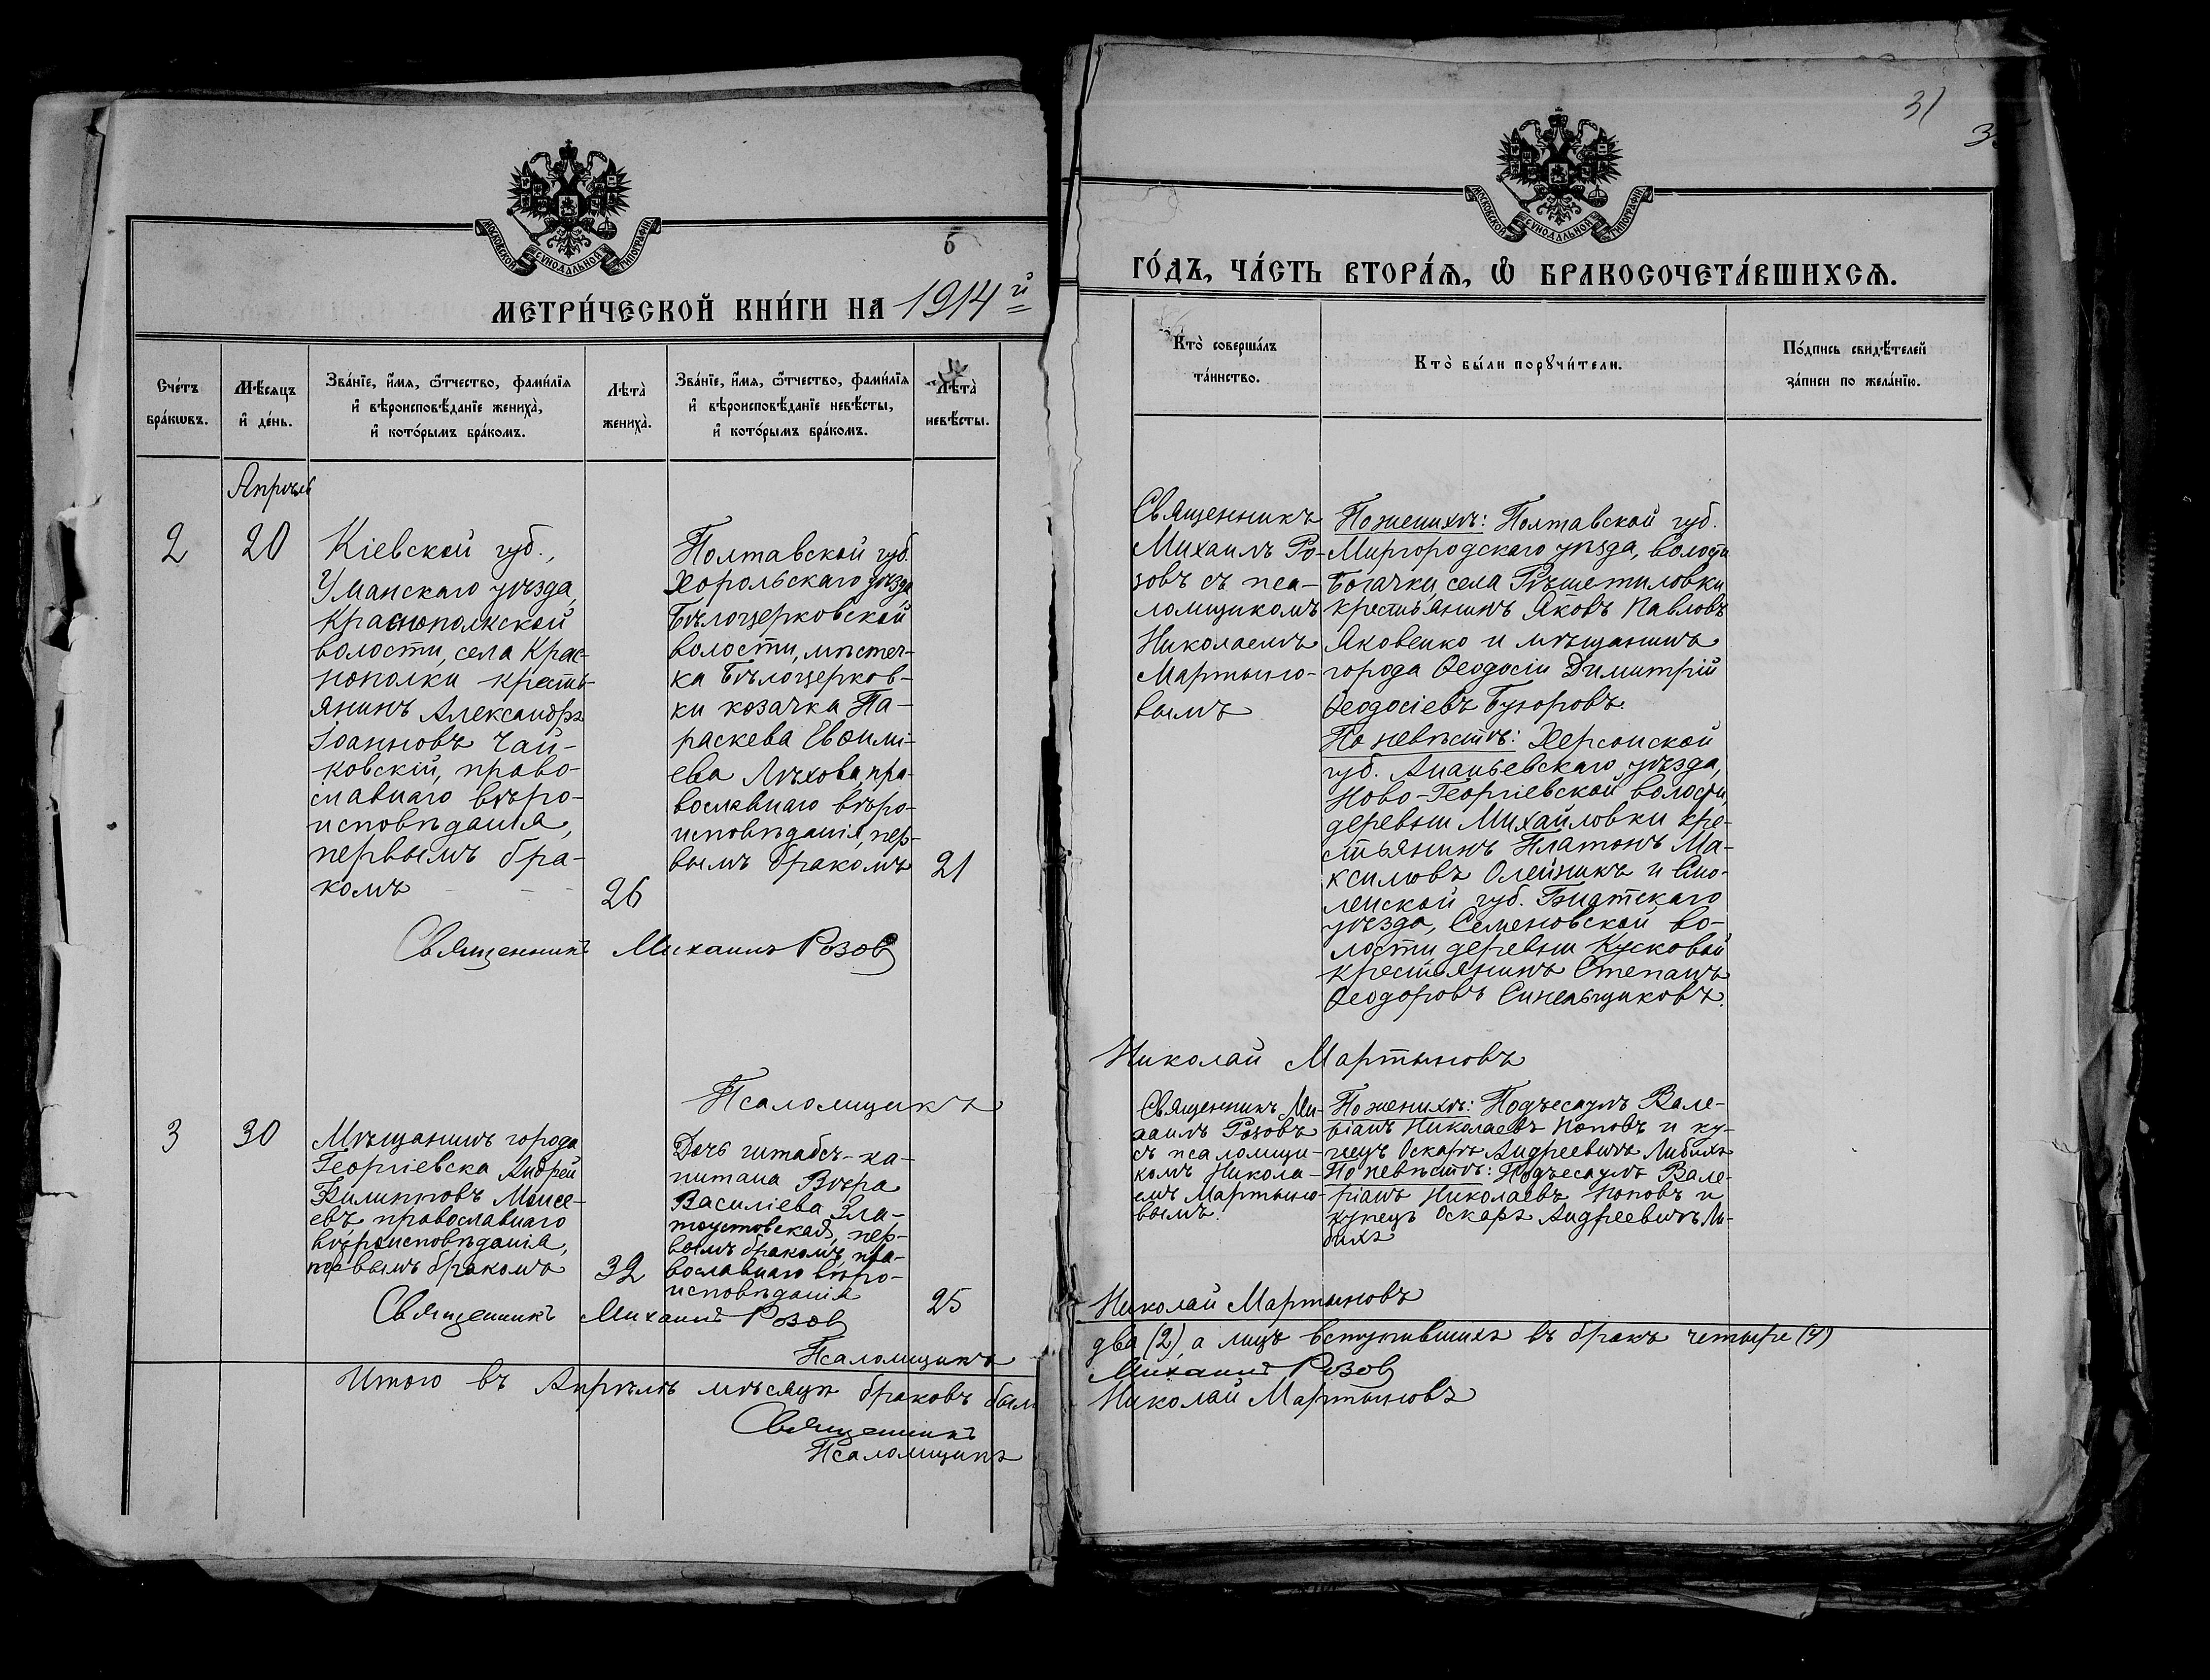 31
МОСКОВСКОЙ СѴНОДАЛЬНОЙ ТИПОГРАФІИ
6
МЕТРИ́ЧЕСКОЙ КНИ́ГИ НА 1914й
Сче́тъ
бра́кѡвъ.
Мѣ́сѧцъ
и҆ де́нь.
Зва́нїе, и҆́мѧ, ѿтчество, фами́лїѧ
и҆ вѣроисповѣ́данїе жениха̀,
и҆ кото́рымъ бра́комъ.
Лѣта̀
жениха̀.
Зва́нїе, и҆́мѧ, ѿтчество, фами́лїѧ
и҆ вѣроисповѣ́данїе невѣ́сты,
и҆ кото́рымъ бра́комъ.
Лѣта̀
невѣ́сты.
Апрѣль
2
20
Кіевской губ.,
Уманскаго уѣзда,
Краснополкской
волости, села Крас-
нополки кресть-
янинъ Александръ
Іоанновъ Чай-
ковскій, право-
славнаго вѣро-
исповѣданія,
первымъ бра-
комъ
26
Полтавской губ.
Хорольскаго уѣзда
Бѣлоцерковской
волости, мѣстеч-
ка Бѣлоцерков-
ки козачка Па-
раскева Евѳимі-
ева Лѣхова, пра-
вославнаго вѣро-
исповѣданія, пер-
вымъ бракомъ
21
Священникъ Михаилъ Розов
Псаломщикъ
3
30
Мѣщанинъ города
Георгіевска Андрей
Филипповъ Моисе-
евъ православнаго
вѣроисповѣданія,
первымъ бракомъ
32
Дочь штабсъ-ка-
питана Вѣра
Василіева Зла-
тоустовская, пер-
вымъ бракомъ, пра-
вославнаго вѣро-
исповѣданія
25
Священникъ Михаилъ Розов
Псаломщикъ
Итого въ Апрѣлѣ мѣсяцѣ браковъ было
Священникъ
Псаломщикъ
МОСКОВСКОЙ СѴНОДАЛЬНОЙ ТИПОГРАФІИ
ГО́ДЪ, ЧА́СТЬ ВТОРА́Ѧ, Ѡ҆ БРАКОСОЧЕТА́ВШИХСѦ.
Кто̀ соверша́лъ
та́инство.
Кто̀ бы́ли порꙋчи́тели.
По́дпись свидѣ́телей
за́писи по жела́нїю.
Священникъ
Михаилъ Ро-
зовъ съ пса-
ломщикомъ
Николаемъ
Мартыно-
вымъ
По женихѣ: Полтавской губ.
Миргородскаго уѣзда, волости
Богачки, села Рѣшетиловки
крестьянинъ Яковъ Павловъ
Яковенко и мѣщанинъ
города Ѳеодосіи Димитрій
Ѳеодосіевъ Бугоровъ.
По невѣстѣ: Херсонской
губ. Ананьевскаго уѣзда,
Ново-Георгіевской волости,
деревни Михайловки кре-
стьянинъ Платонъ Ма-
ксимовъ Олейникъ и Смо-
ленской губ. Гжатскаго
уѣзда, Семеновской во-
лости деревни Кусковой
крестьянинъ Степанъ
Ѳеодоровъ Синельщиковъ.
Николай Мартыновъ
Священникъ Ми-
хаилъ Розовъ
съ псаломщи-
комъ Никола-
емъ Мартыно-
вымъ.
По женихѣ: Подъесаулъ Вале-
ріанъ Николаевъ Поповъ и ку-
пецъ Оскаръ Андреевичъ Либихъ
По невѣстѣ: Подъесаулъ Вале-
ріанъ Николаевъ Поповъ и
купецъ Оскаръ Андреевичъ Ли-
бихъ
Николай Мартыновъ
два (2), а лицъ вступившихъ въ бракъ четыре (4)
Михаилъ Розов
Николай Мартыновъ